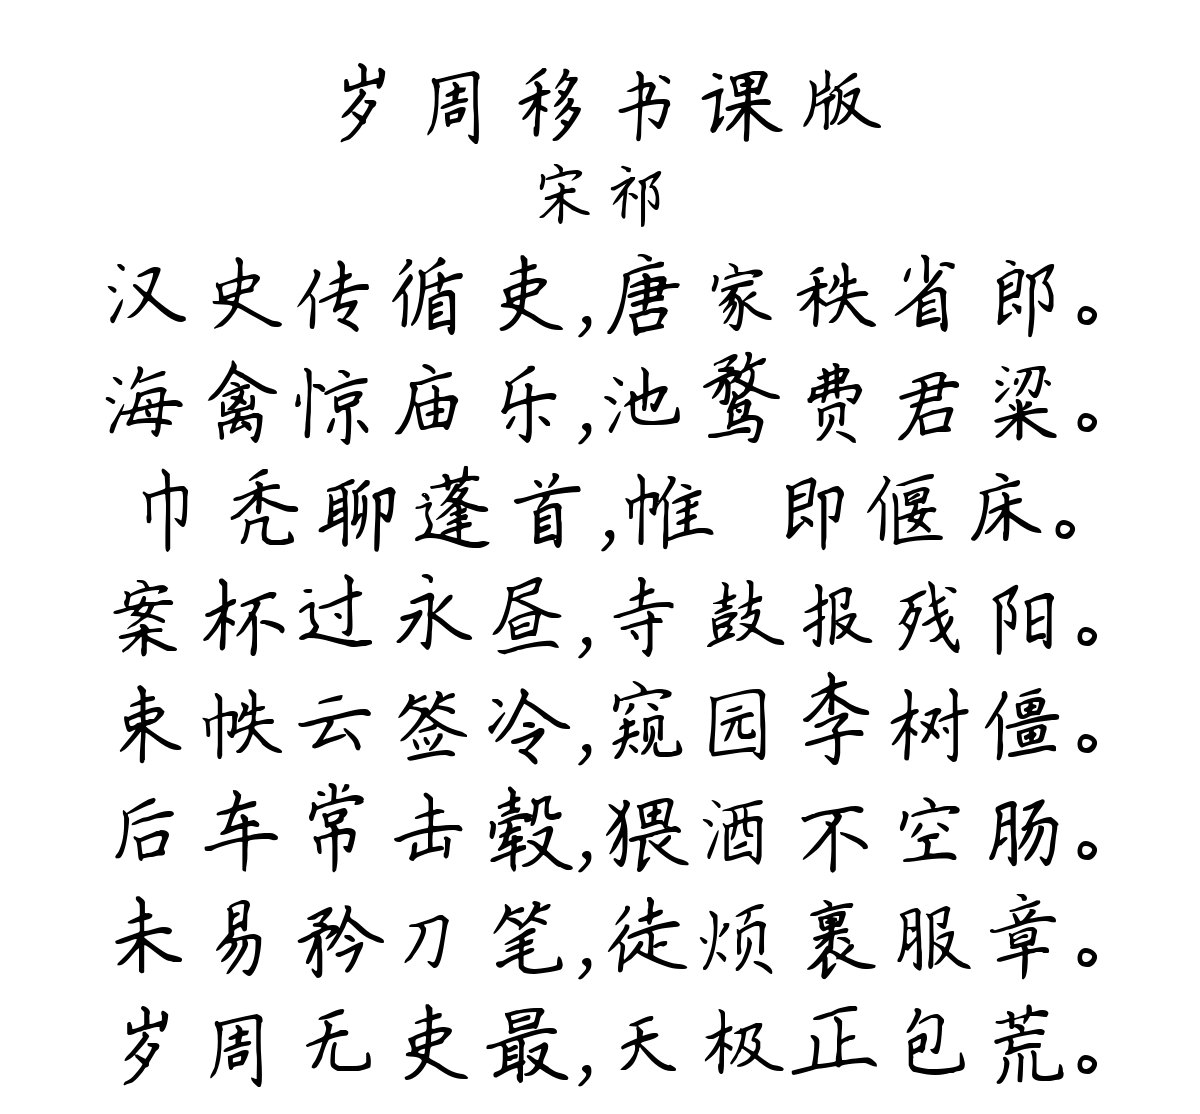 岁周移书课版
宋祁
汉史传循吏,唐家秩省郎。
海禽惊庙乐,池鹜费君粱。
巾秃聊蓬首,帷 即偃床。
案杯过永昼,寺鼓报残阳。
束帙云签冷,窥园李树僵。
后车常击毂,猥酒不空肠。
未易矜刀笔,徒烦裹服章。
岁周无吏最,天极正包荒。